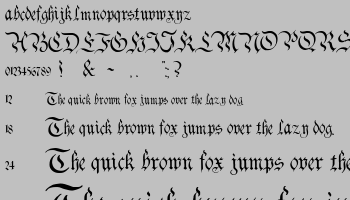 abcdefghijklmnopqrstuvwxyz
ABCDEFGHIJKLMNOPQRS
0123456789 ! & - .. : ; ?
12 The quick brown fox jumps over the lazy dog
18 The quick brown fox jumps over the lazy dog
24 The quick brown fox jumps over the